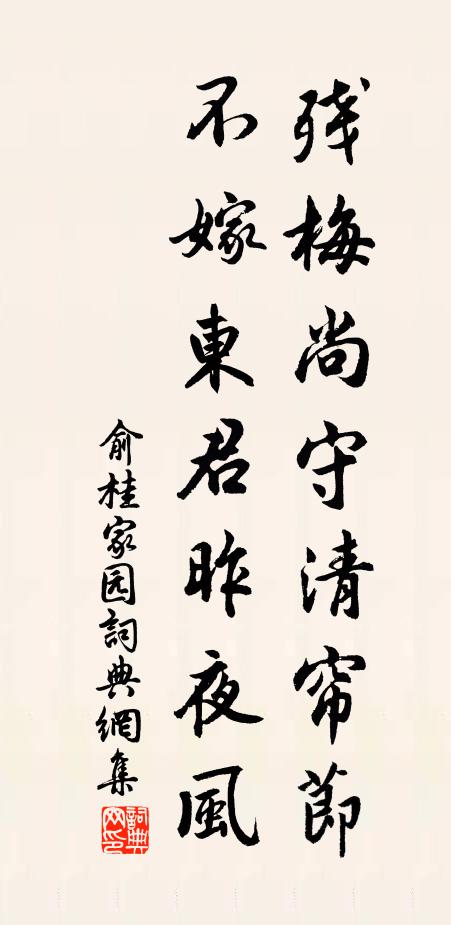 残梅尚守清帘節
不嫁東君昨夜風
俞桂家园詞典網集
詞典
网印